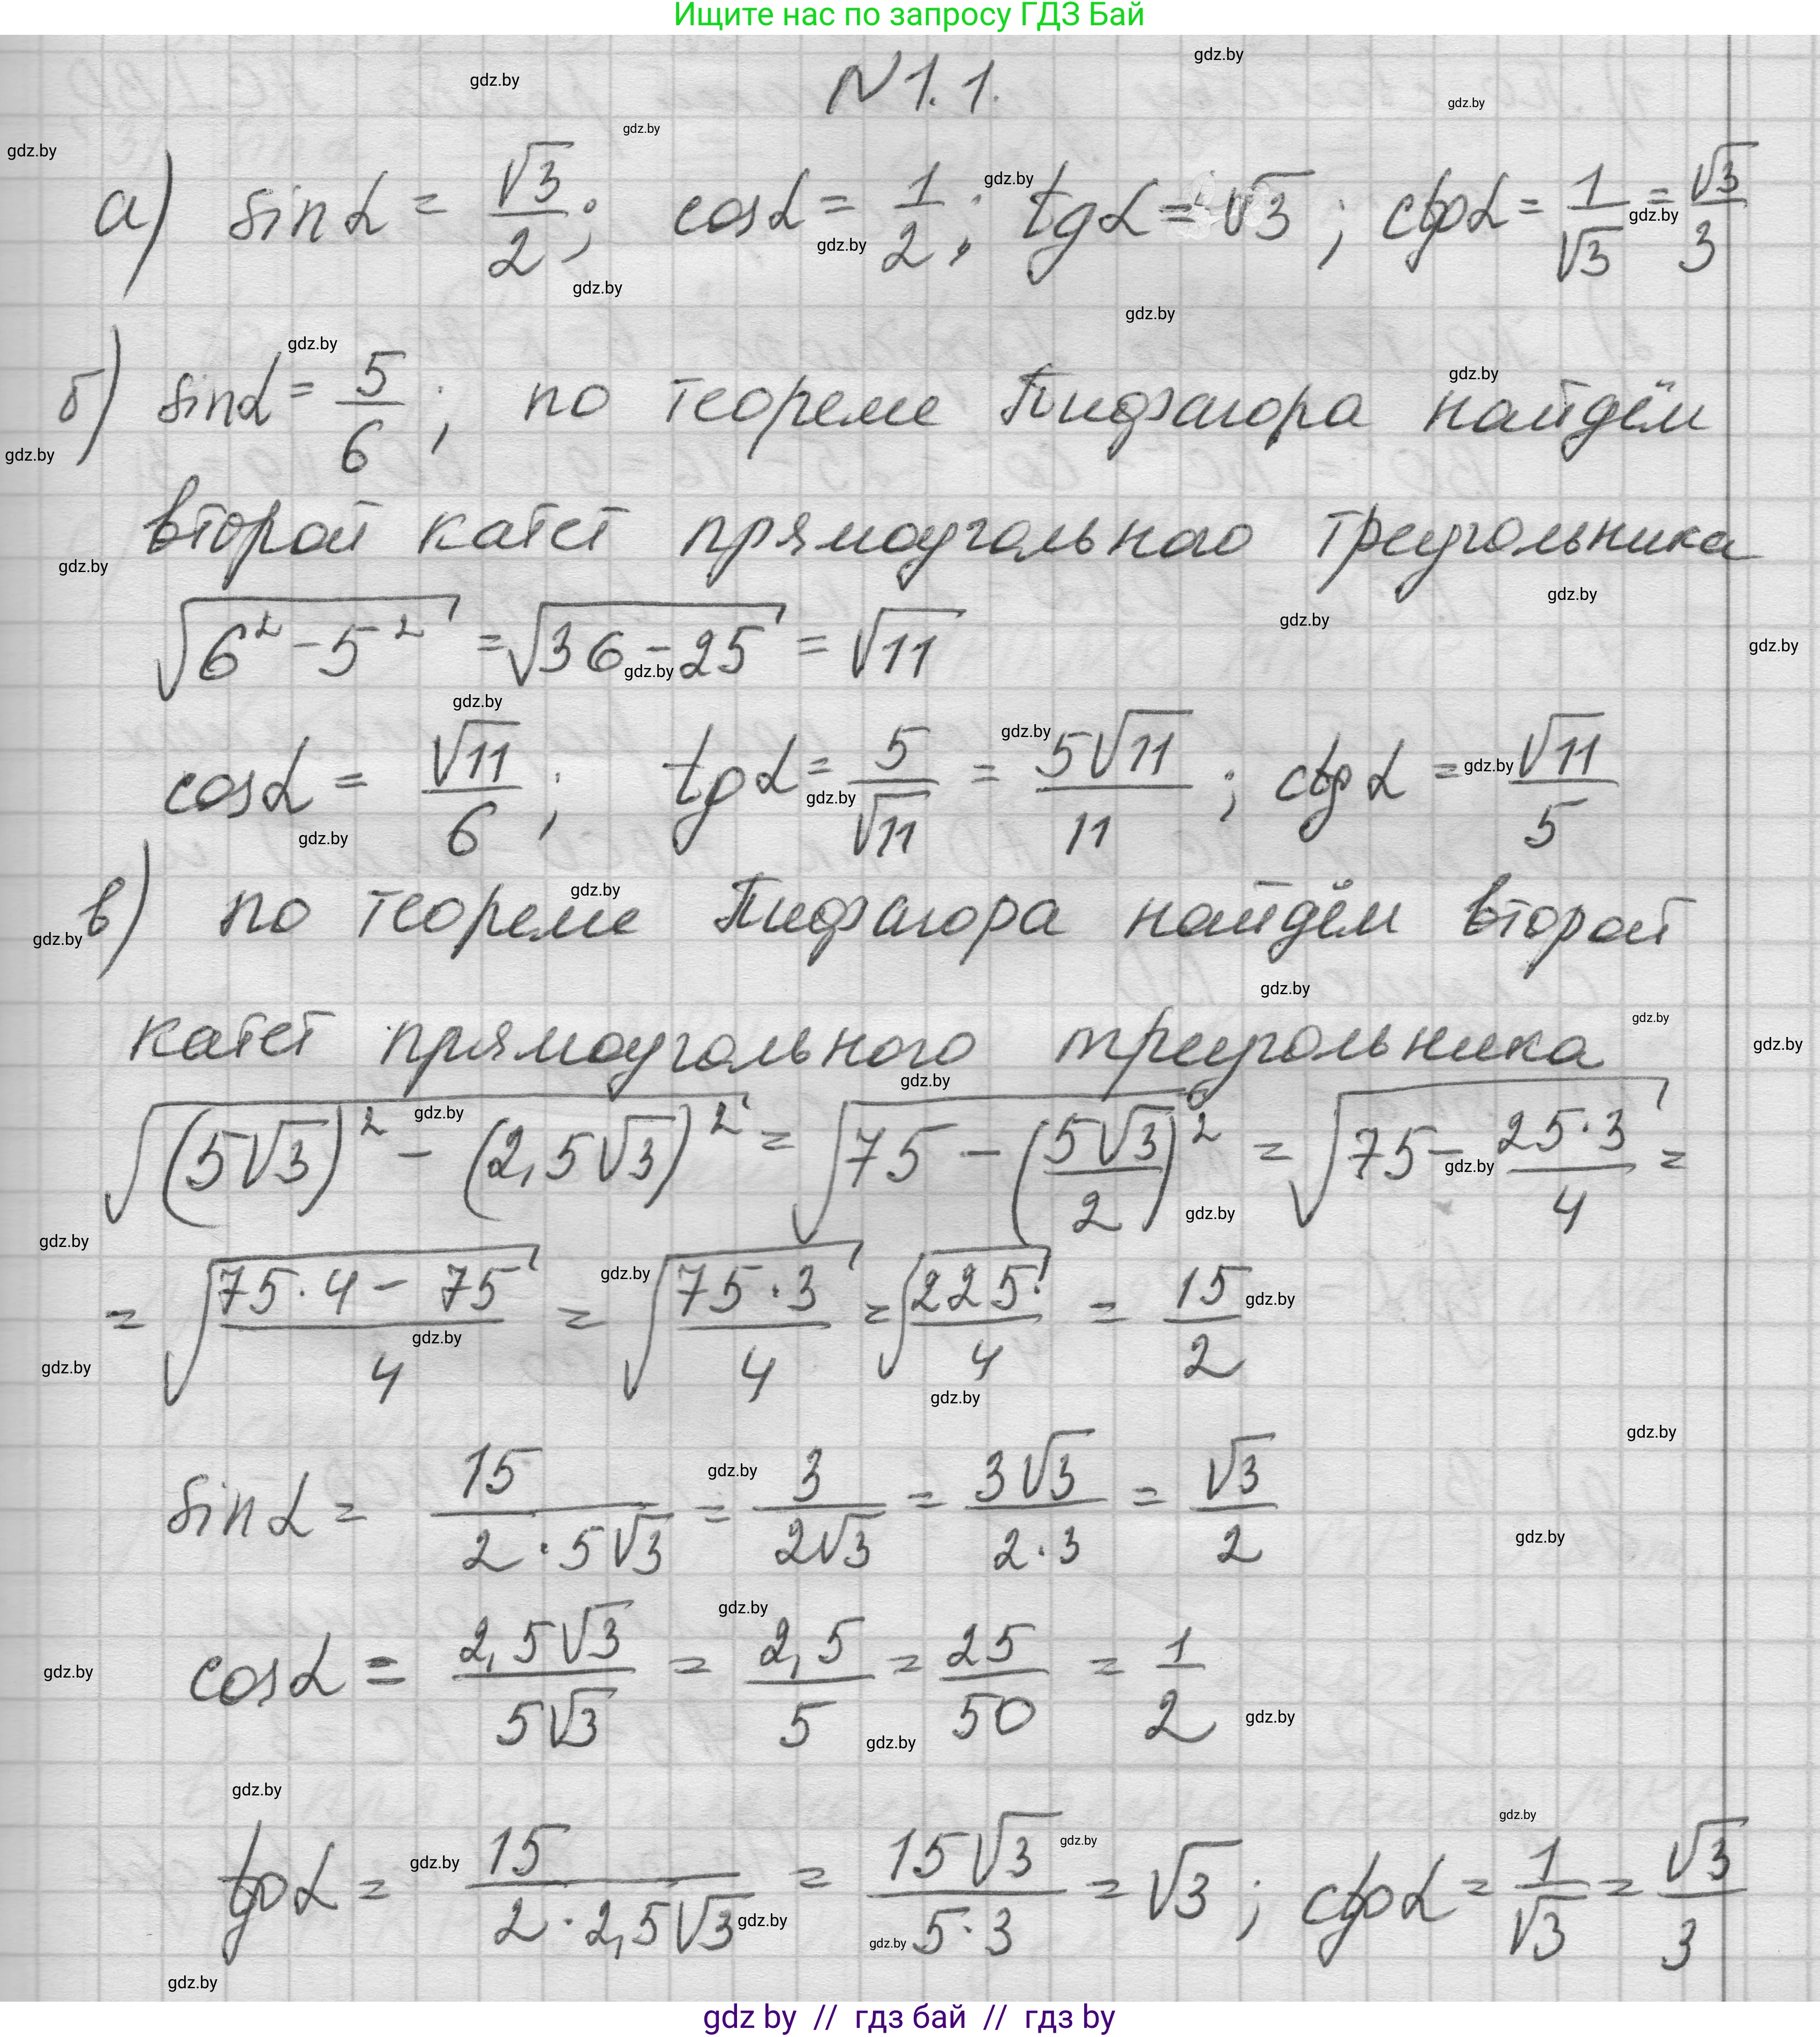 Ищите нас по запросу ГДЗ Бай
N 1.1.
а) sin α = √3/2; cos α = 1/2; tg α = √3; ctg α = 1/√3 = √3/3
б) sin α = 5/6; по теореме Пифагора найдём
второй катет прямоугольного треугольника
√(6² - 5²) = √(36 - 25) = √11
cos α = √11/6; tg α = 5/√11 = 5√11/11; ctg α = √11/5
в) по теореме Пифагора найдём второй
катет прямоугольного треугольника
√((5√3)² - (2,5√3)²) = √(75 - (5√3/2)²) = √(75 - 25·3/4) =
= √((75·4 - 75)/4) = √(75·3/4) = √(225/4) = 15/2
sin α = 15/(2·5√3) = 3/(2√3) = 3√3/(2·3) = √3/2
cos α = 2,5√3/(5√3) = 2,5/5 = 25/50 = 1/2
tg α = 15/(2·2,5√3) = 15√3/(5·3) = √3; ctg α = 1/√3 = √3/3
gdz by // гдз бай // гдз by